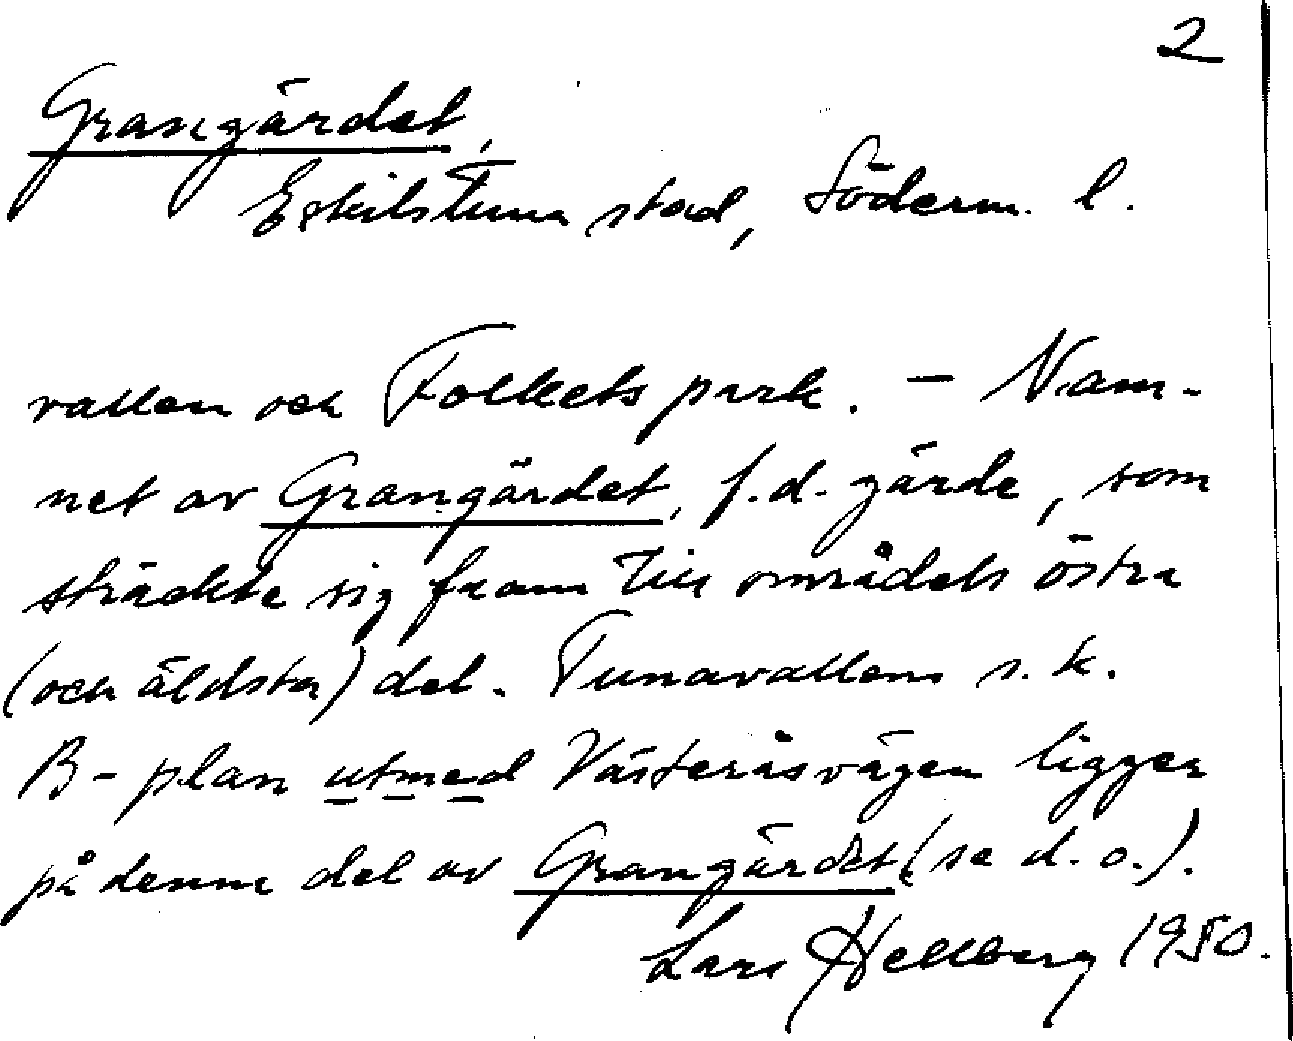 2
Grangärdet,
Eskilstuna stad, Söderm. l.
vallen och Folkets park. – Nam-
net av Grangärdet, f.d. gärde, som
sträckte sig fram till områdets östra
(och äldsta) del. Tunavallens s.k.
B-plan utmed Västeråsvägen ligger
på denna del av Grangärdet (se d.o.).
Lars Hellberg 1950.